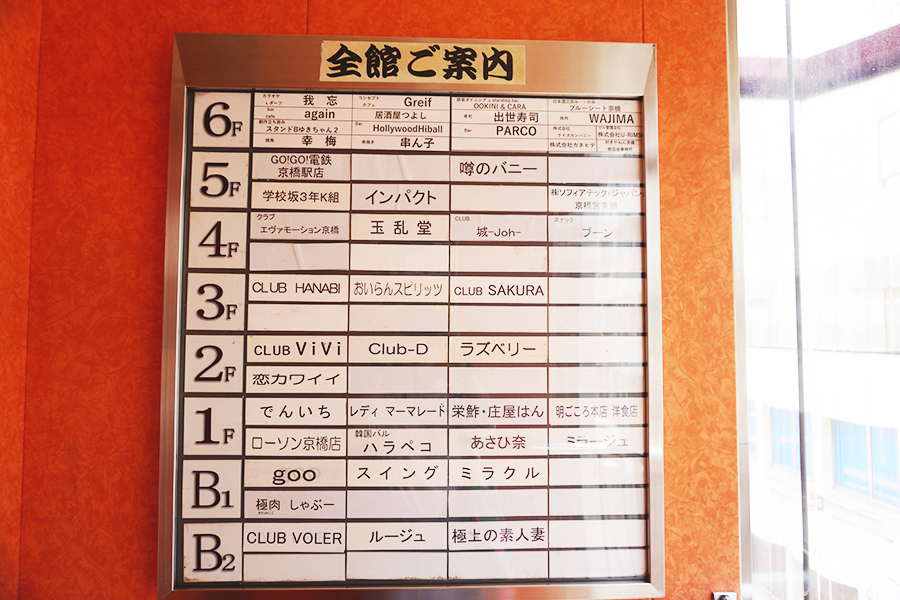 全館ご案内
6F
カラオケ
我 忘
コンセプト
カフェ
Greif
OOKINI & CARA
ブルーシート京橋
bar
cafe
again
居酒屋つよし
寿司
出世寿司
焼肉
WAJIMA
創作立ち呑み
スタンドBゆきちゃん2
Bar
HollywoodHiball
Bar
PARCO
株式会社
ケイズカンパニー
株式会社U-RiMS
焼鳥
幸 梅
串ん子
株式会社カネヒデ
5F
GO!GO!電鉄
京橋駅店
噂のバニー
学校坂3年K組
インパクト
㈱ソフィアテック・ジャパン
京橋営業所
4F
クラブ
エヴァモーション京橋
玉 乱 堂
CLUB
城-Joh-
スナック
ブーン
3F
CLUB HANABI
おいらんスピリッツ
CLUB SAKURA
2F
CLUB ViVi
Club-D
ラズベリー
恋カワイイ
1F
でんいち
レディ マーマレード
栄鮓・庄屋はん
明ごころ本店 洋食店
ローソン京橋店
韓国バル
ハラペコ
あさひ奈
ミラージュ
B1
goo
スイング
ミラクル
極肉 しゃぶー
B2
CLUB VOLER
ルージュ
極上の素人妻